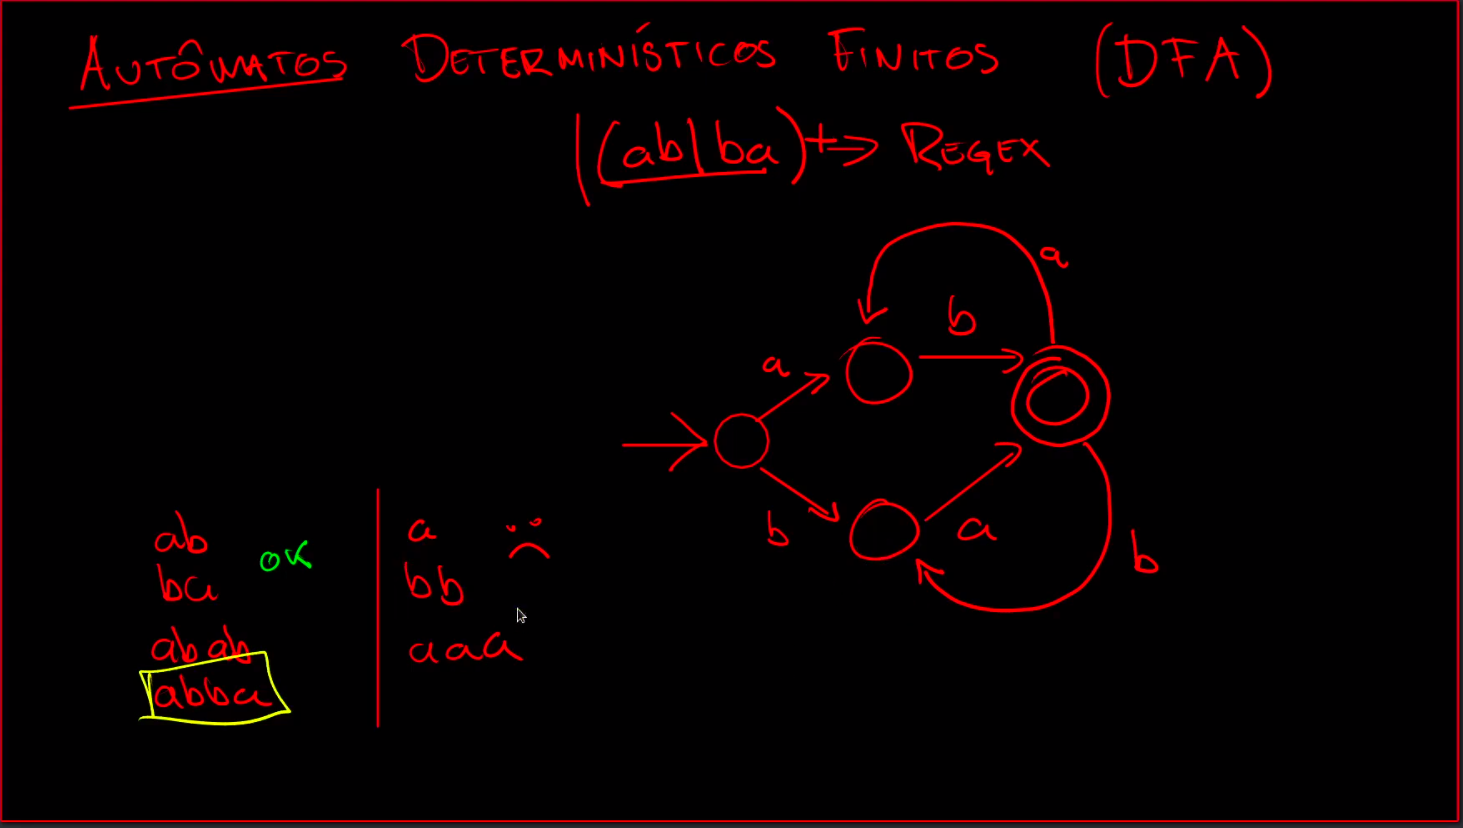 AUTÔMATOS DETERMINÍSTICOS FINITOS (DFA)
|(ab|ba)+ => REGEX
a
b
a
b
a
b
ab
ba
OK
abab
abba
a
bb
aaa